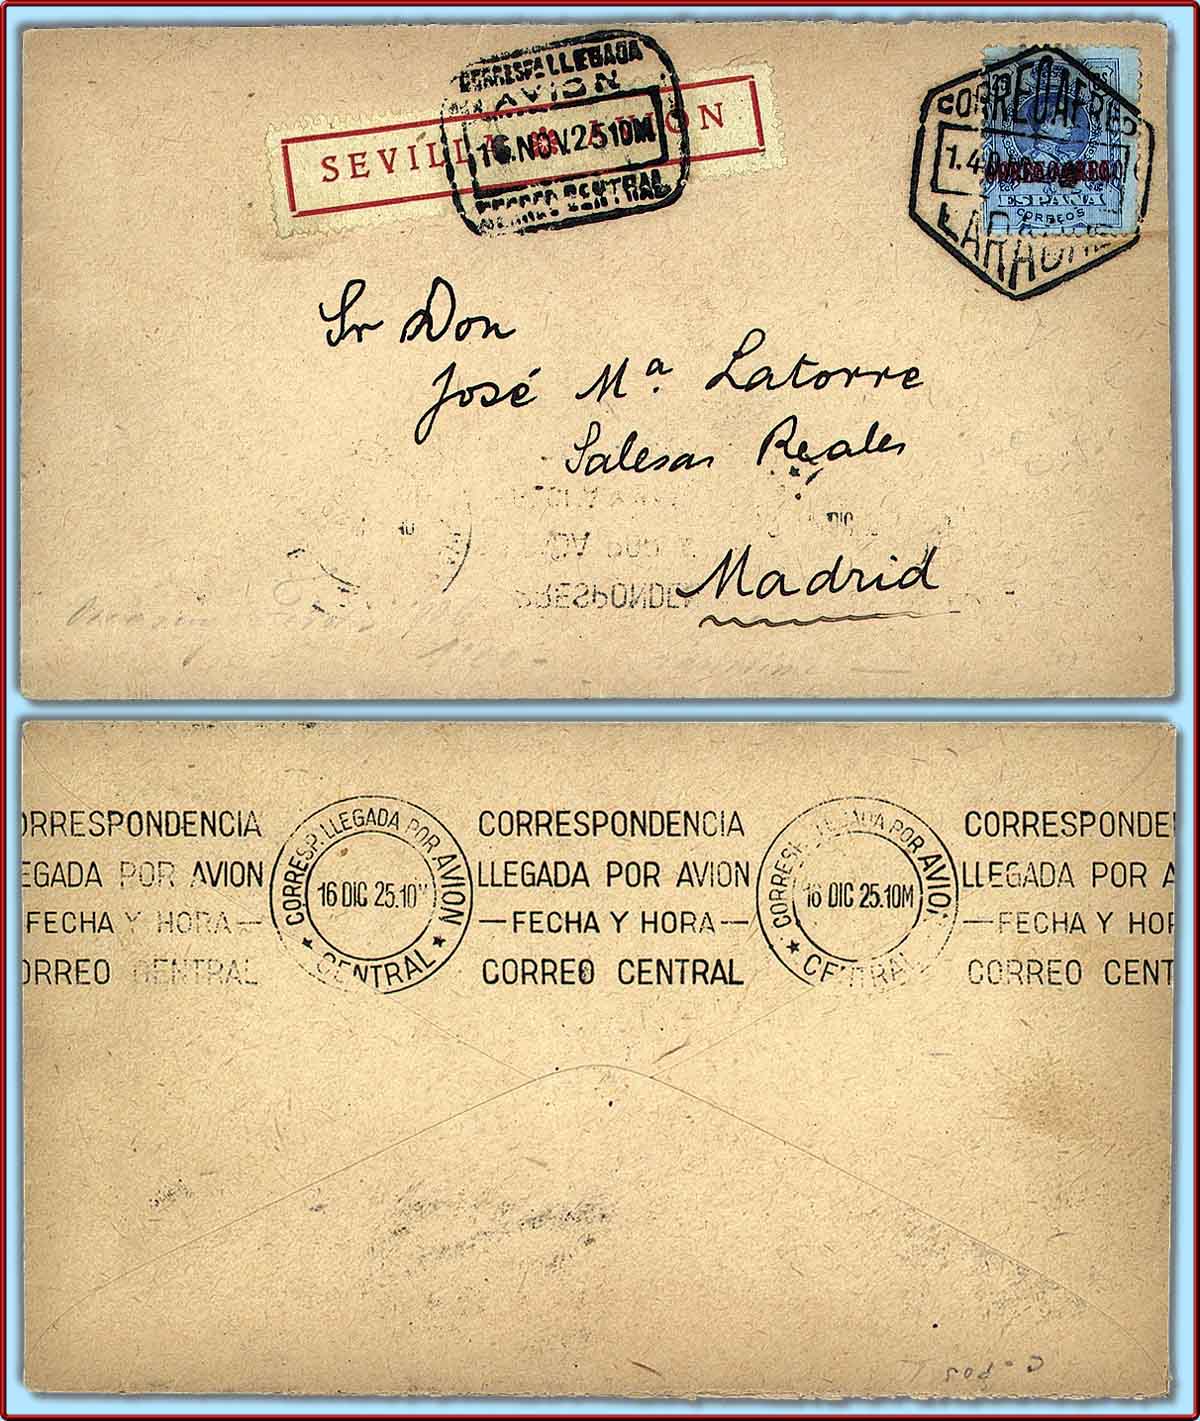 CORRESPª LLEGADA
AVION
16.NOV.25 10M
CORREO CENTRAL
SEVILLA AVION
CORREO AEREO
1.4
LARACHE
CORREO AEREO
ESPAÑA
CORREOS
Sr Don
José Mª Latorre
Salesas Reales
Madrid
CORRESPONDENCIA
LLEGADA POR AVION
—FECHA Y HORA—
CORREO CENTRAL
CORRESP. LLEGADA POR AVION
16 DIC 25.10M
★ CENTRAL ★
CORRESPONDENCIA
LLEGADA POR AVION
—FECHA Y HORA—
CORREO CENTRAL
CORRESP. LLEGADA POR AVION
16 DIC 25.10M
★ CENTRAL
CORRESPONDE
LLEGADA POR A
—FECHA Y HOR
CORREO CENT